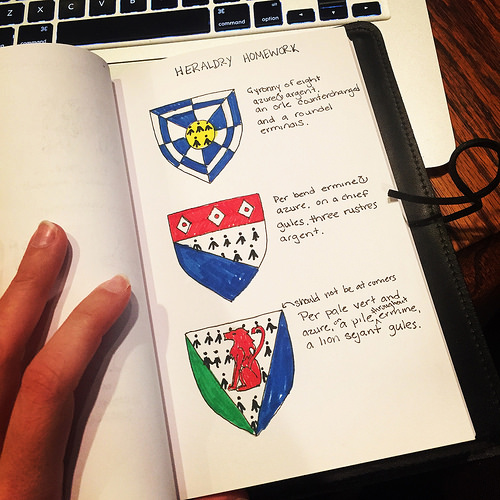 Z X C V B N M < >
⌘ command option
HERALDRY HOMEWORK
Gyronny of eight
azure & argent,
an orle counterchanged
and a roundel
erminois.
Per bend ermine &
azure, on a chief
gules, three rustres
argent.
should not be at corners
Per pale vert and
azure, on a pile throughout ermine,
a lion sejant gules.